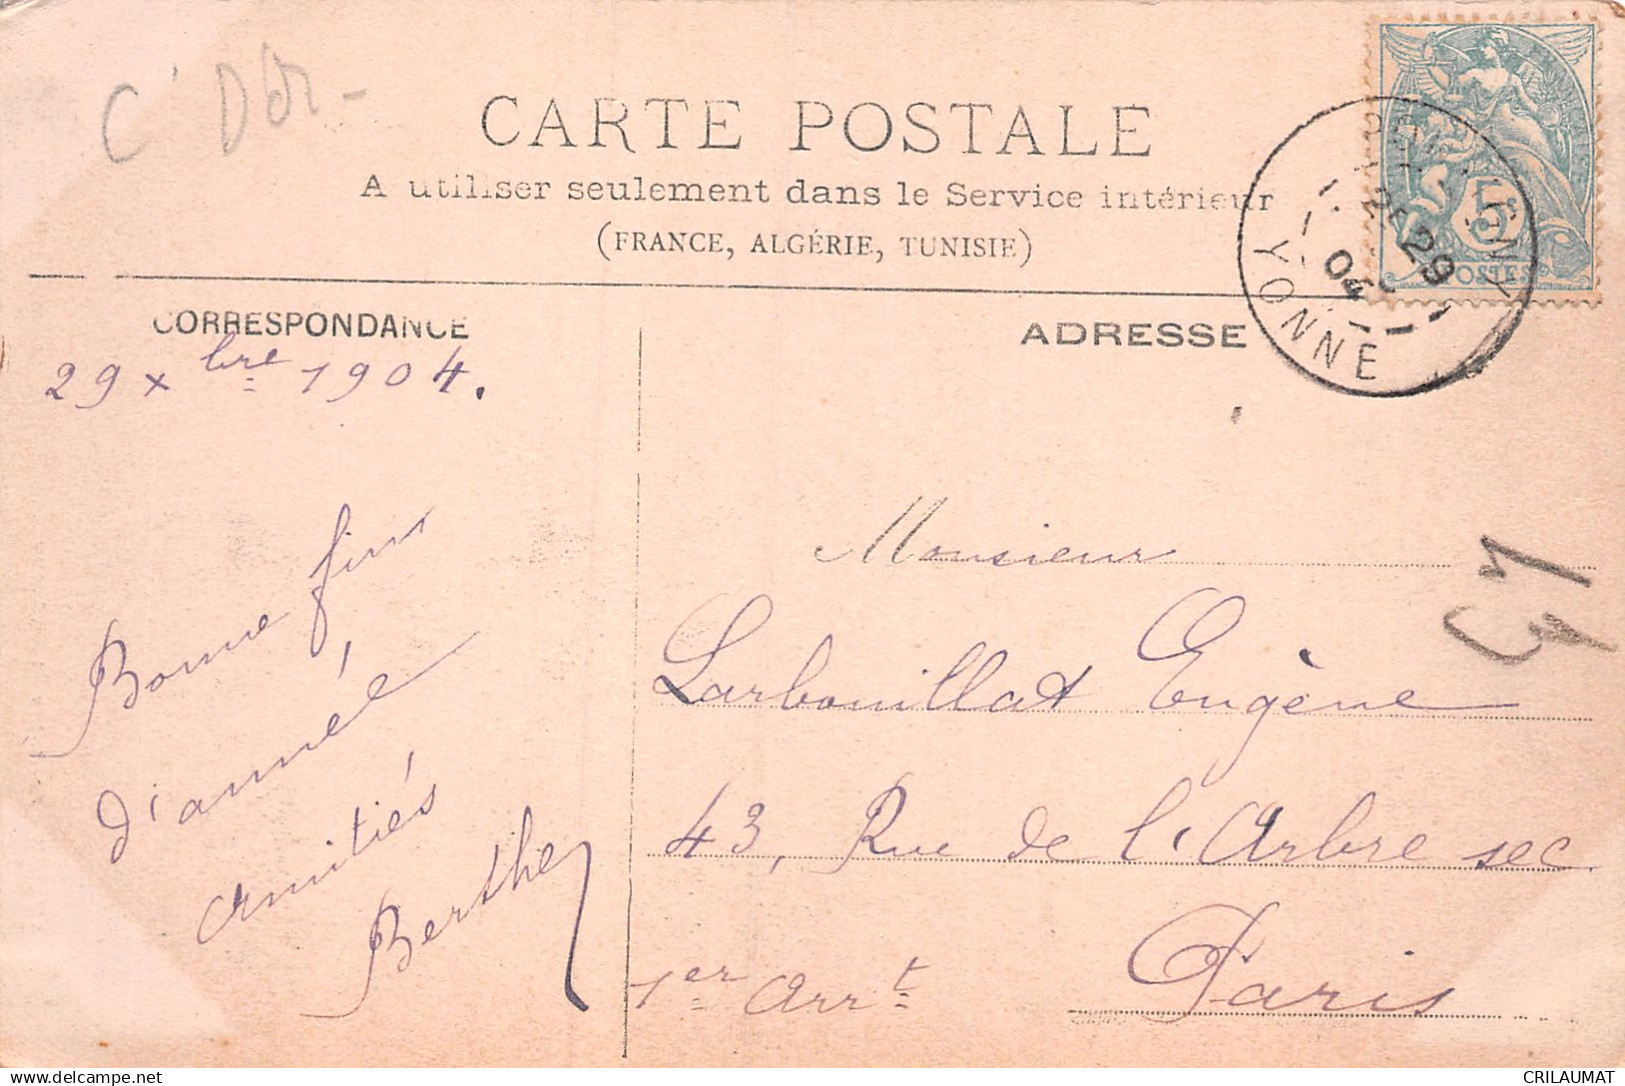 C. D'Or -
CARTE POSTALE
A utiliser seulement dans le Service intérieur
(FRANCE, ALGÉRIE, TUNISIE)
5c
POSTES
12E 29
04
YONNE
CORRESPONDANCE
ADRESSE
29 xbre 1904.
Bonne fin
d'année
amitiés
Berthe
Monsieur
Larbouillat Eugène
43, Rue de l'Arbre sec
1er Arrt Paris
CRILAUMAT